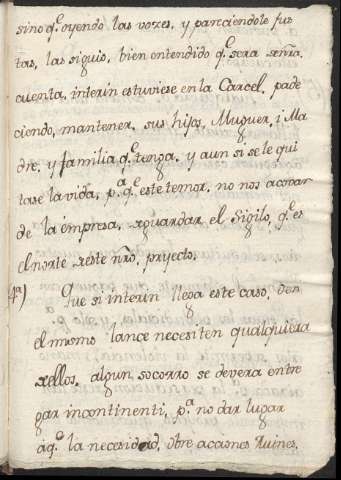 sino qᵉ oyendo las voxes, y pareciendole jus
tas, las siguio, bien entendido qᵉ sera de ñra
cuenta, interin estuviese en la Carcel, pade
ciendo, mantener, sus hijos, Muguer, i Ma
dre, y familia qᵉ tenga, y aun si se le qui
tase la vida, pᵃ qᵉ este temor, no nos acovar
de la empresa, xguardar el Sigilo, qᵉ es
el norte xeste nŕo, proyecto.
4ᵃ) Que si interin llega este caso, o en
el mesmo lance necesiten qualquiera
xellos, algun socorro se devera entre
gar incontinenti, pᵃ no dar lugar
áqᵉ la necesidad, obre acciones Ruines,